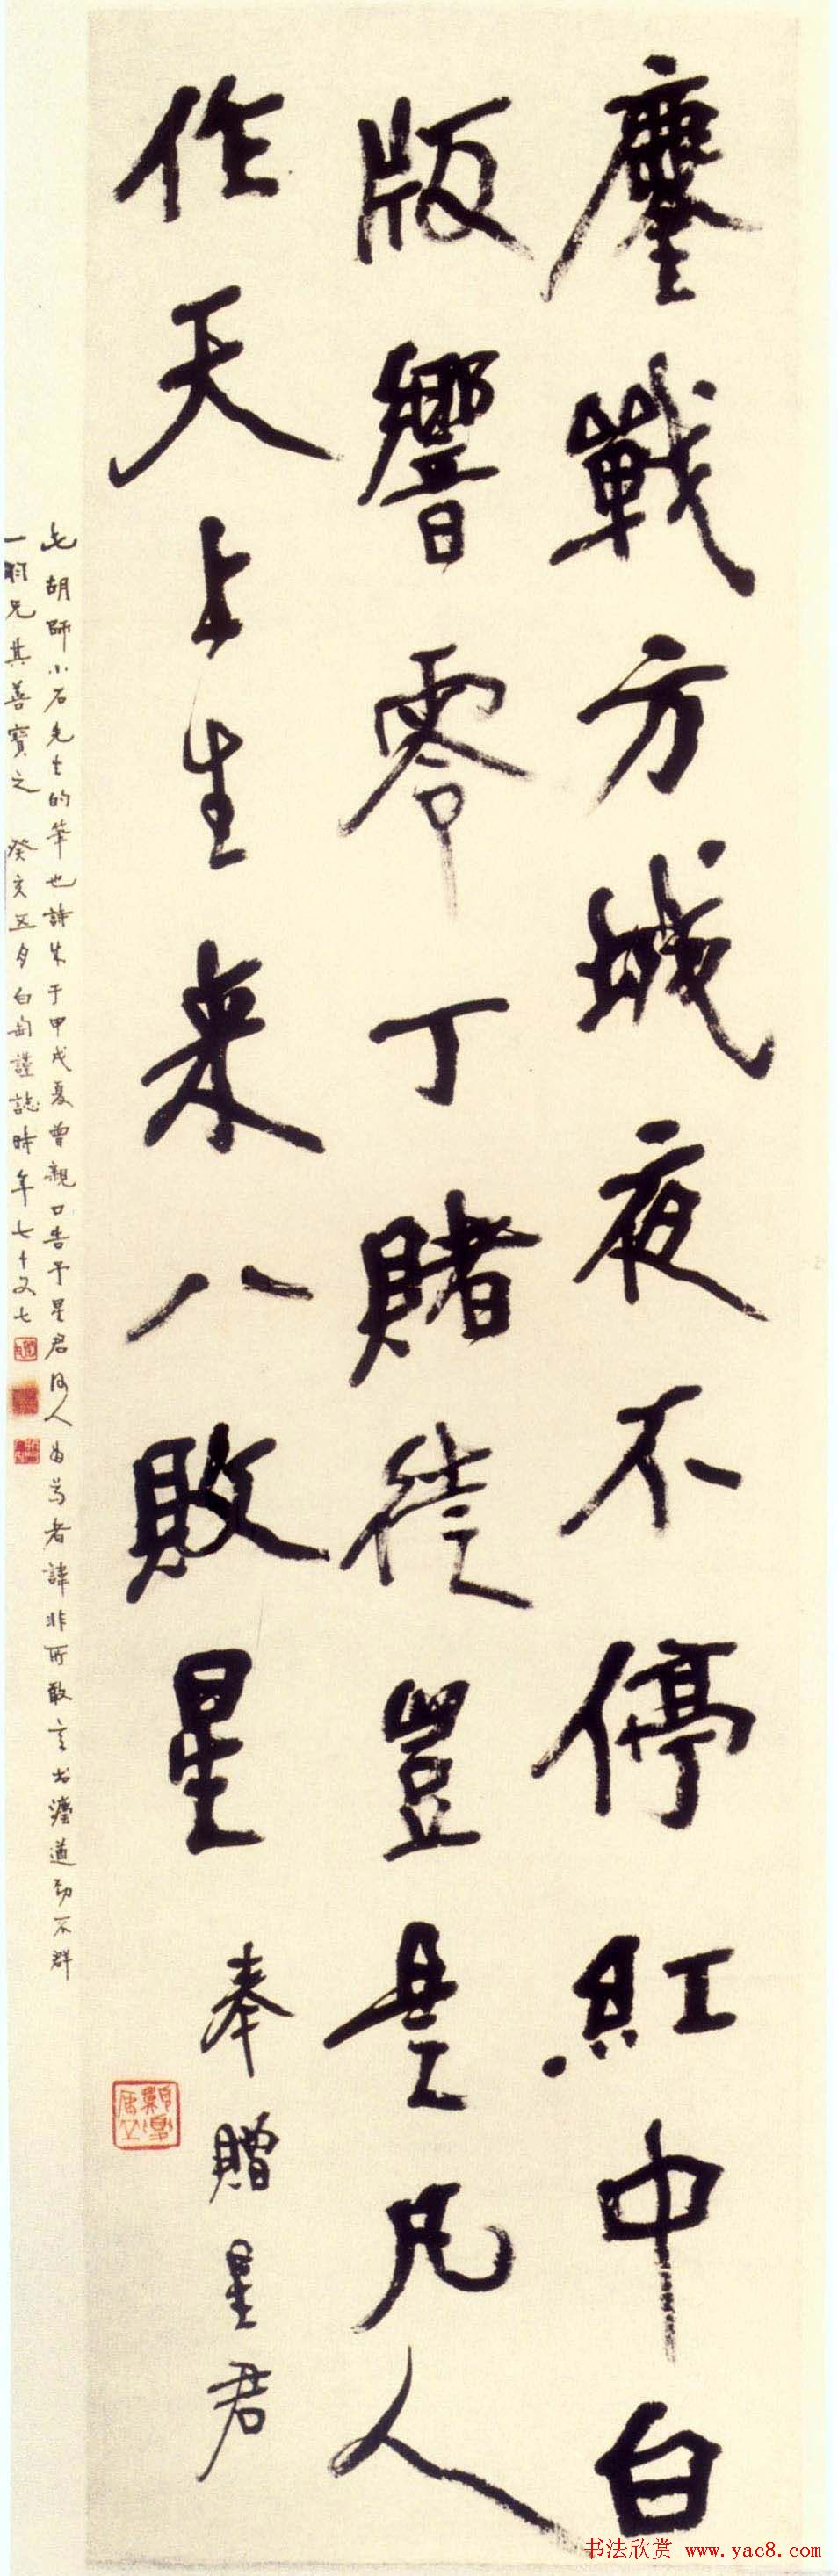 鏖戰方城夜不停紅中白
版響零丁賭徒豈是凡人
作天上生來八敗星 奉贈星君
此胡師小石先生的筆也詩于甲戌夏曾親口告予星君何人為者諱非所敢言書法遒勁不群
一羽兄其善寶之 癸亥五月白匋謹誌時年七十又七
书法欣赏 www.yac8.com